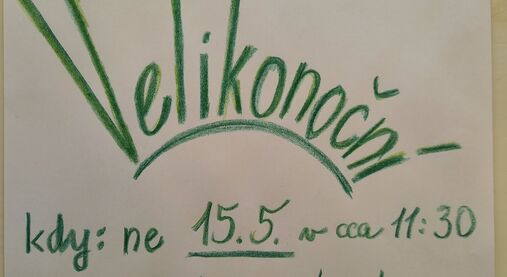 Velikonoční –
kdy: ne 15.5. v cca 11:30